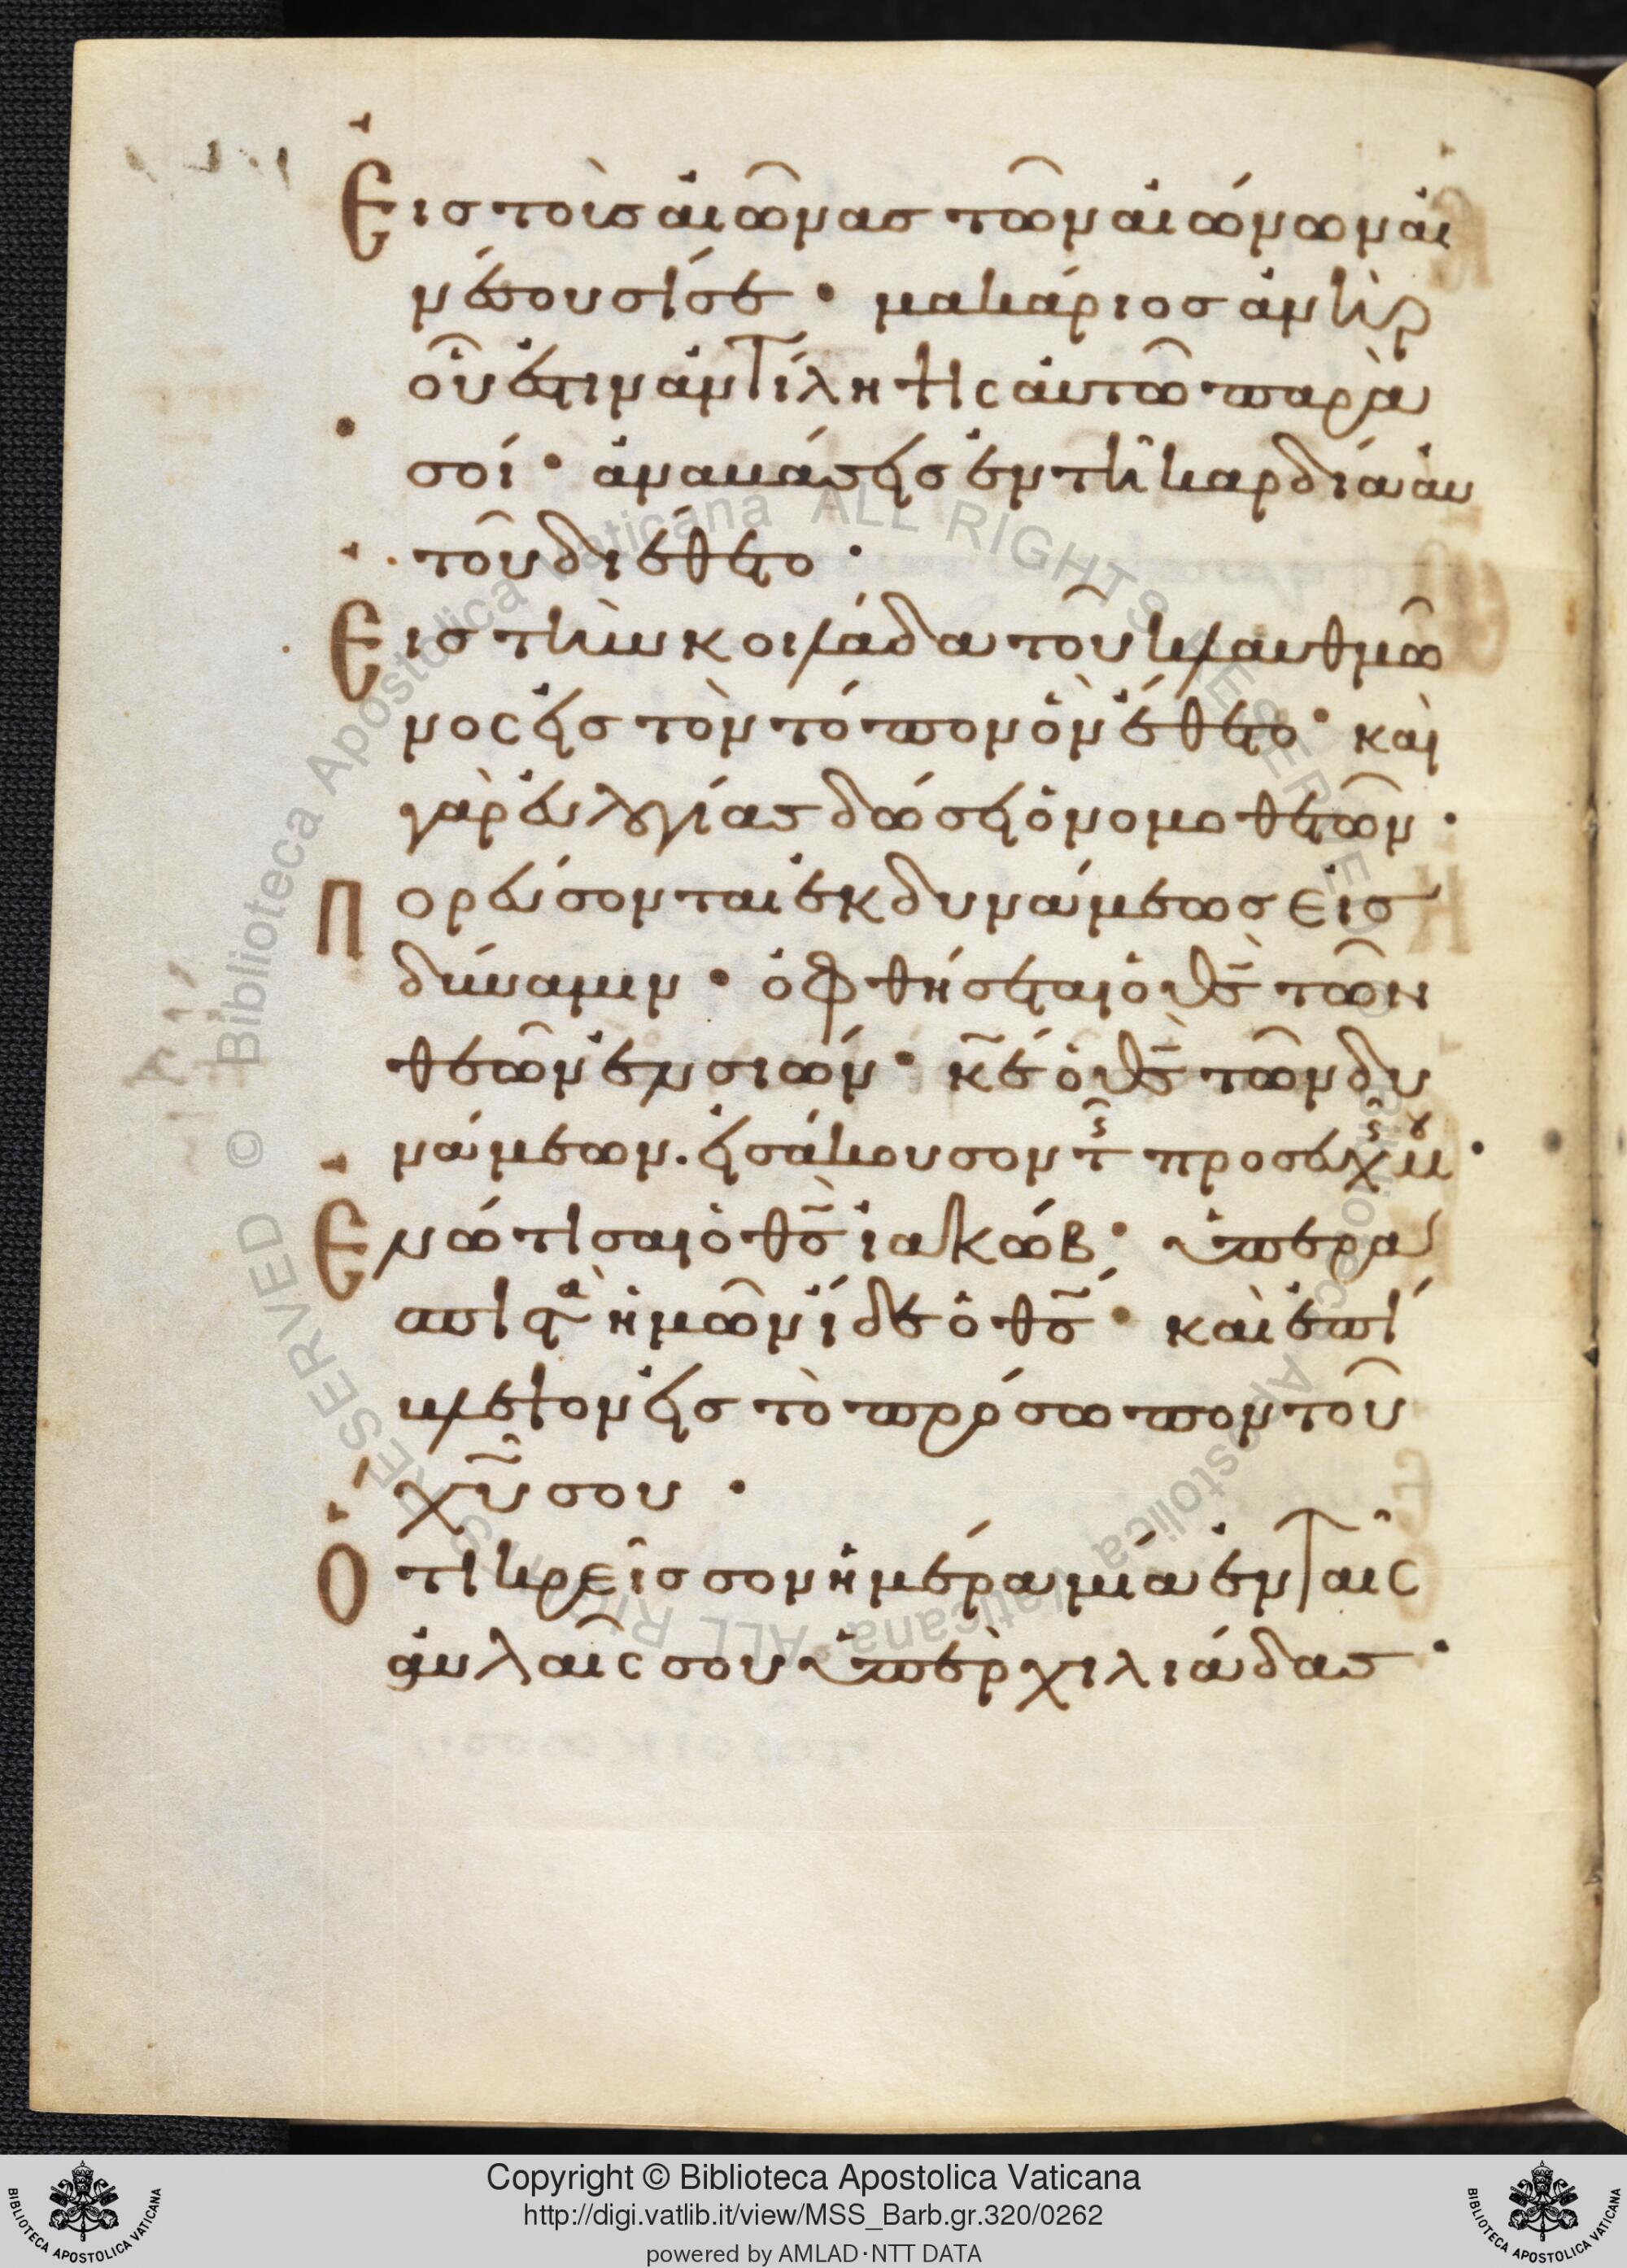 Εἰς τοὺς αἰῶνας τῶν αἰώνων αἰ
νέσουσί σε · μακάριος ἀνὴρ
οὗ ἐστιν ἀντίληψις αὐτῶ παρὰ
σοί · ἀναβάσεις ἐν τῆ καρδία αὐ
τοῦ διέθετο ·
Εἰς τὴν κοιλάδα τοῦ κλαυθμῶ
νος εἰς τὸν τόπον ὃν ἔθετο · καὶ
γὰρ εὐλογίας δώσει ὁ νομοθετῶν ·
Πορεύσονται ἐκ δυνάμεως εἰς
δύναμιν · ὀφθήσεται ὁ θς τῶν
θεῶν ἐν σιών · κε ὁ θς τῶν δυ
νάμεων. εἰσάκουσον τῆς προσευχῆς μου ·
Ενώτισαι ὁ θς ἰακώβ · ὑπερα
σπιστὰ ἡμῶν ἴδε ὁ θς · καὶ ἐπί
βλεψον εἰς τὸ πρόσωπον τοῦ
χυ σου ·
Οτι κρεῖσσον ἡμέρα μία ἐν ταῖς
αὐλαῖς σου ὑπὲρ χιλιάδας ·
Copyright © Biblioteca Apostolica Vaticana
http://digi.vatlib.it/view/MSS_Barb.gr.320/0262
powered by AMLAD·NTT DATA